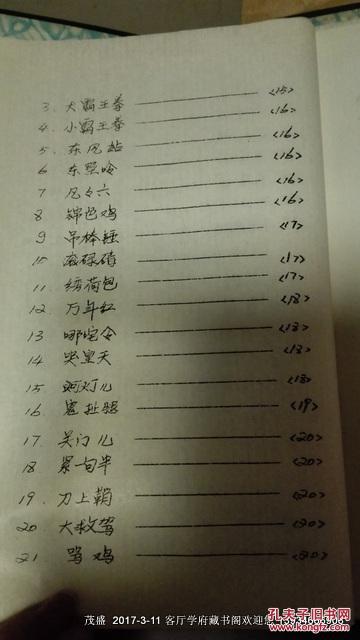 3. 大霸王拳 <15>
4. 小霸王拳 <16>
5. 东风站 <16>
6. 东 <16>
7 凡々六 <16>
8 锦邑鸡 <16>
9 吊棒锤 <17>
10 滚碌碡 <17>
11. 绣荷包 <17>
12. 万年红 <18>
13 哪吒令 <18>
14 哭皇天 <18>
15 灯儿 <18>
16. <19>
17. 关门儿 <20>
18 紧句半 <20>
19. 刀上鞘 <20>
20 大救驾 <20>
21 骂鸡 <20>
茂盛 2017-3-11 客厅学府藏书阁欢迎您
孔夫子旧书网